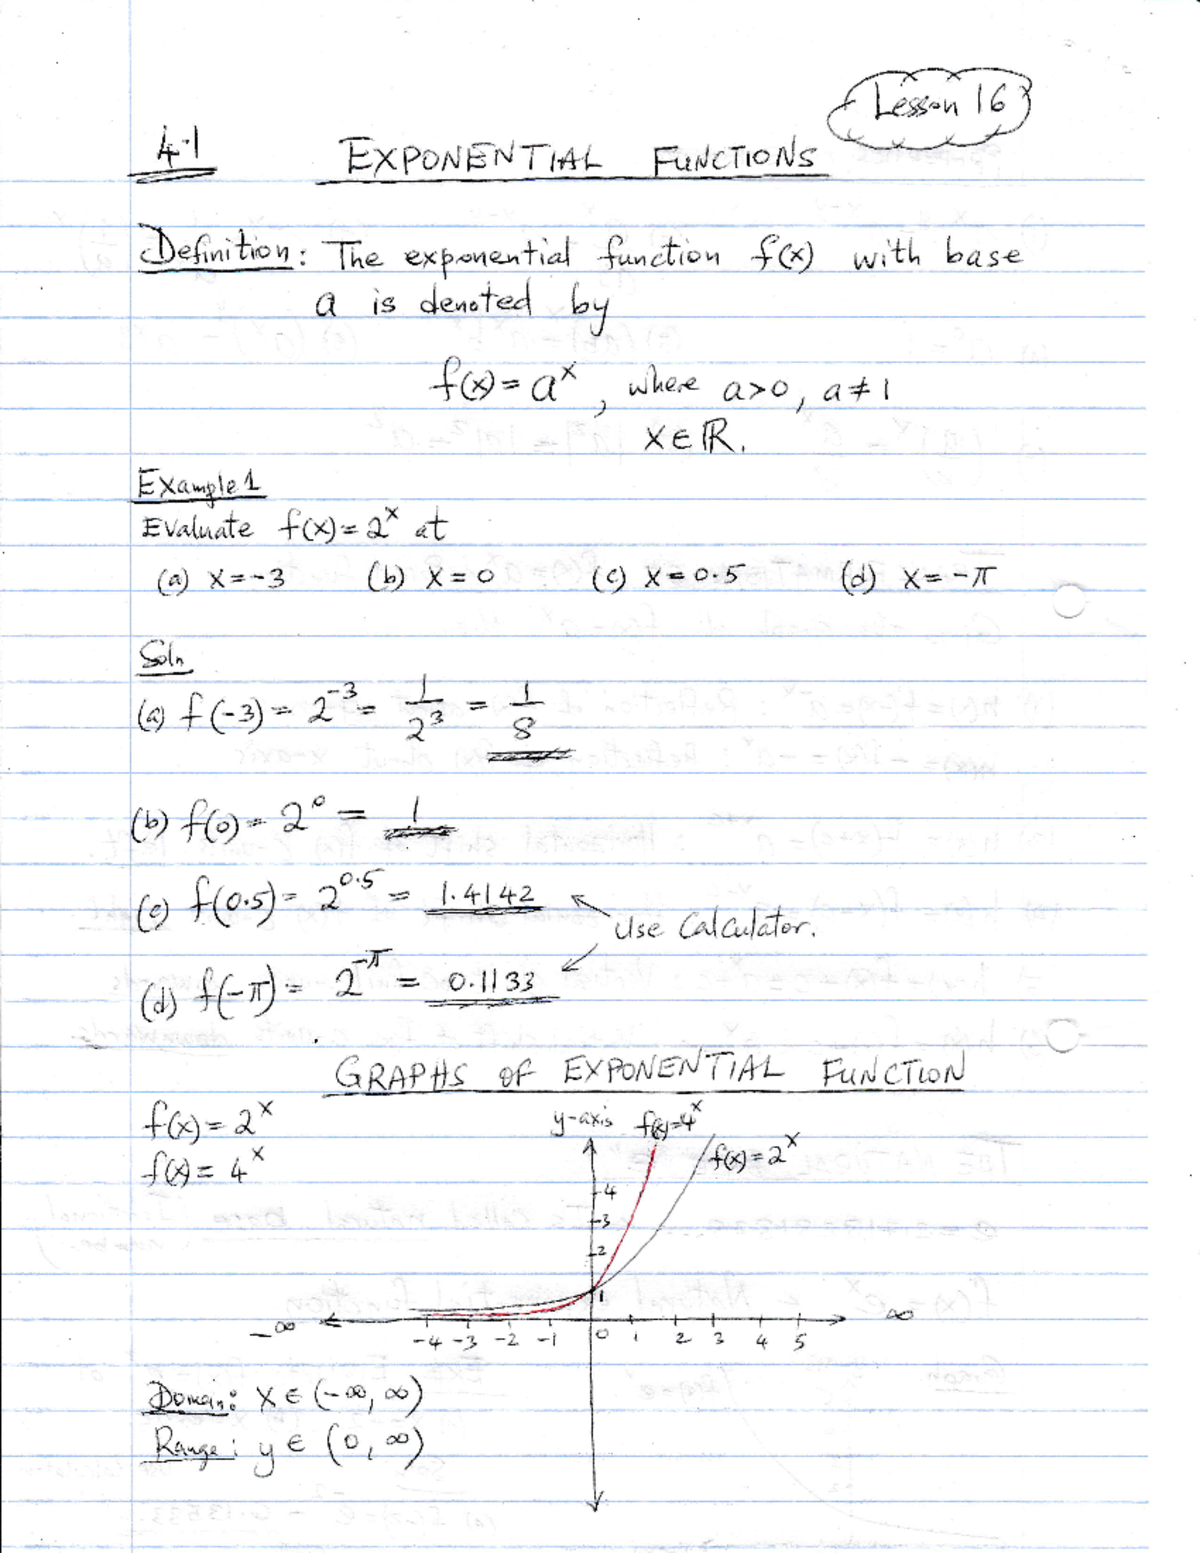 Lesson 16
4.1 EXPONENTIAL FUNCTIONS
Definition: The exponential function f(x) with base
a is denoted by
f(x) = a^x, where a>0, a≠1
x∈ℝ.
Example 1
Evaluate f(x) = 2^x at
(a) x = -3 (b) x = 0 (c) x = 0.5 (d) x = -π
Soln
(a) f(-3) = 2^-3 = 1/2^3 = 1/8
(b) f(0) = 2^0 = 1
(c) f(0.5) = 2^0.5 = 1.4142
Use Calculator.
(d) f(-π) = 2^-π = 0.1133
GRAPHS OF EXPONENTIAL FUNCTION
f(x) = 2^x
f(x) = 4^x
y-axis f(x)=4^x
f(x) = 2^x
4
3
2
1
-∞ ∞
-4 -3 -2 -1 0 1 2 3 4 5
Domain: x ∈ (-∞, ∞)
Range: y ∈ (0, ∞)